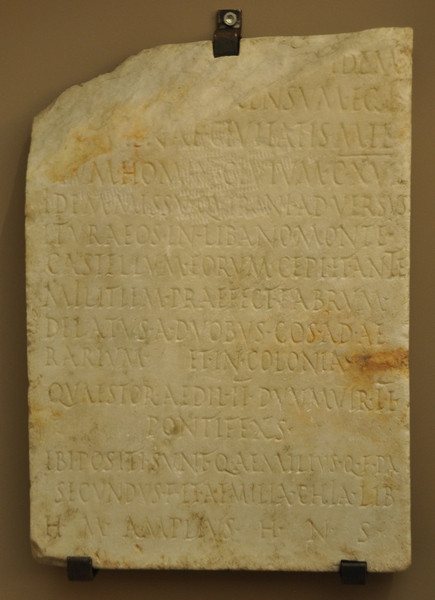 IDEM
CENSVM·EGI
ENAE·CIVITATIS·MIL
HOMIN·CIVIVM·CXVII
IDEM·MISSV·QVIRINI·ADVERSVS
ITVRAEOS·IN·LIBANO·MONTE·
CASTELLVM·EORVM·CEPI·ET·ANTE
MILITIEM·PRAEFECT·FABRVM·
DELATVS·A·DVOBVS·COS·AD·AE
RARIVM· ET·IN·COLONIA·
QVAESTOR·AEDIL·II·DVVMVIR·II
PONTIFEXS·
IBI·POSITI·SVNT·Q·AEMILIVS·Q·F·PAL
SECVNDVS·F·ET·AEMILIA·CHIA·LIB
H·M·AMPLIVS·H·N·S